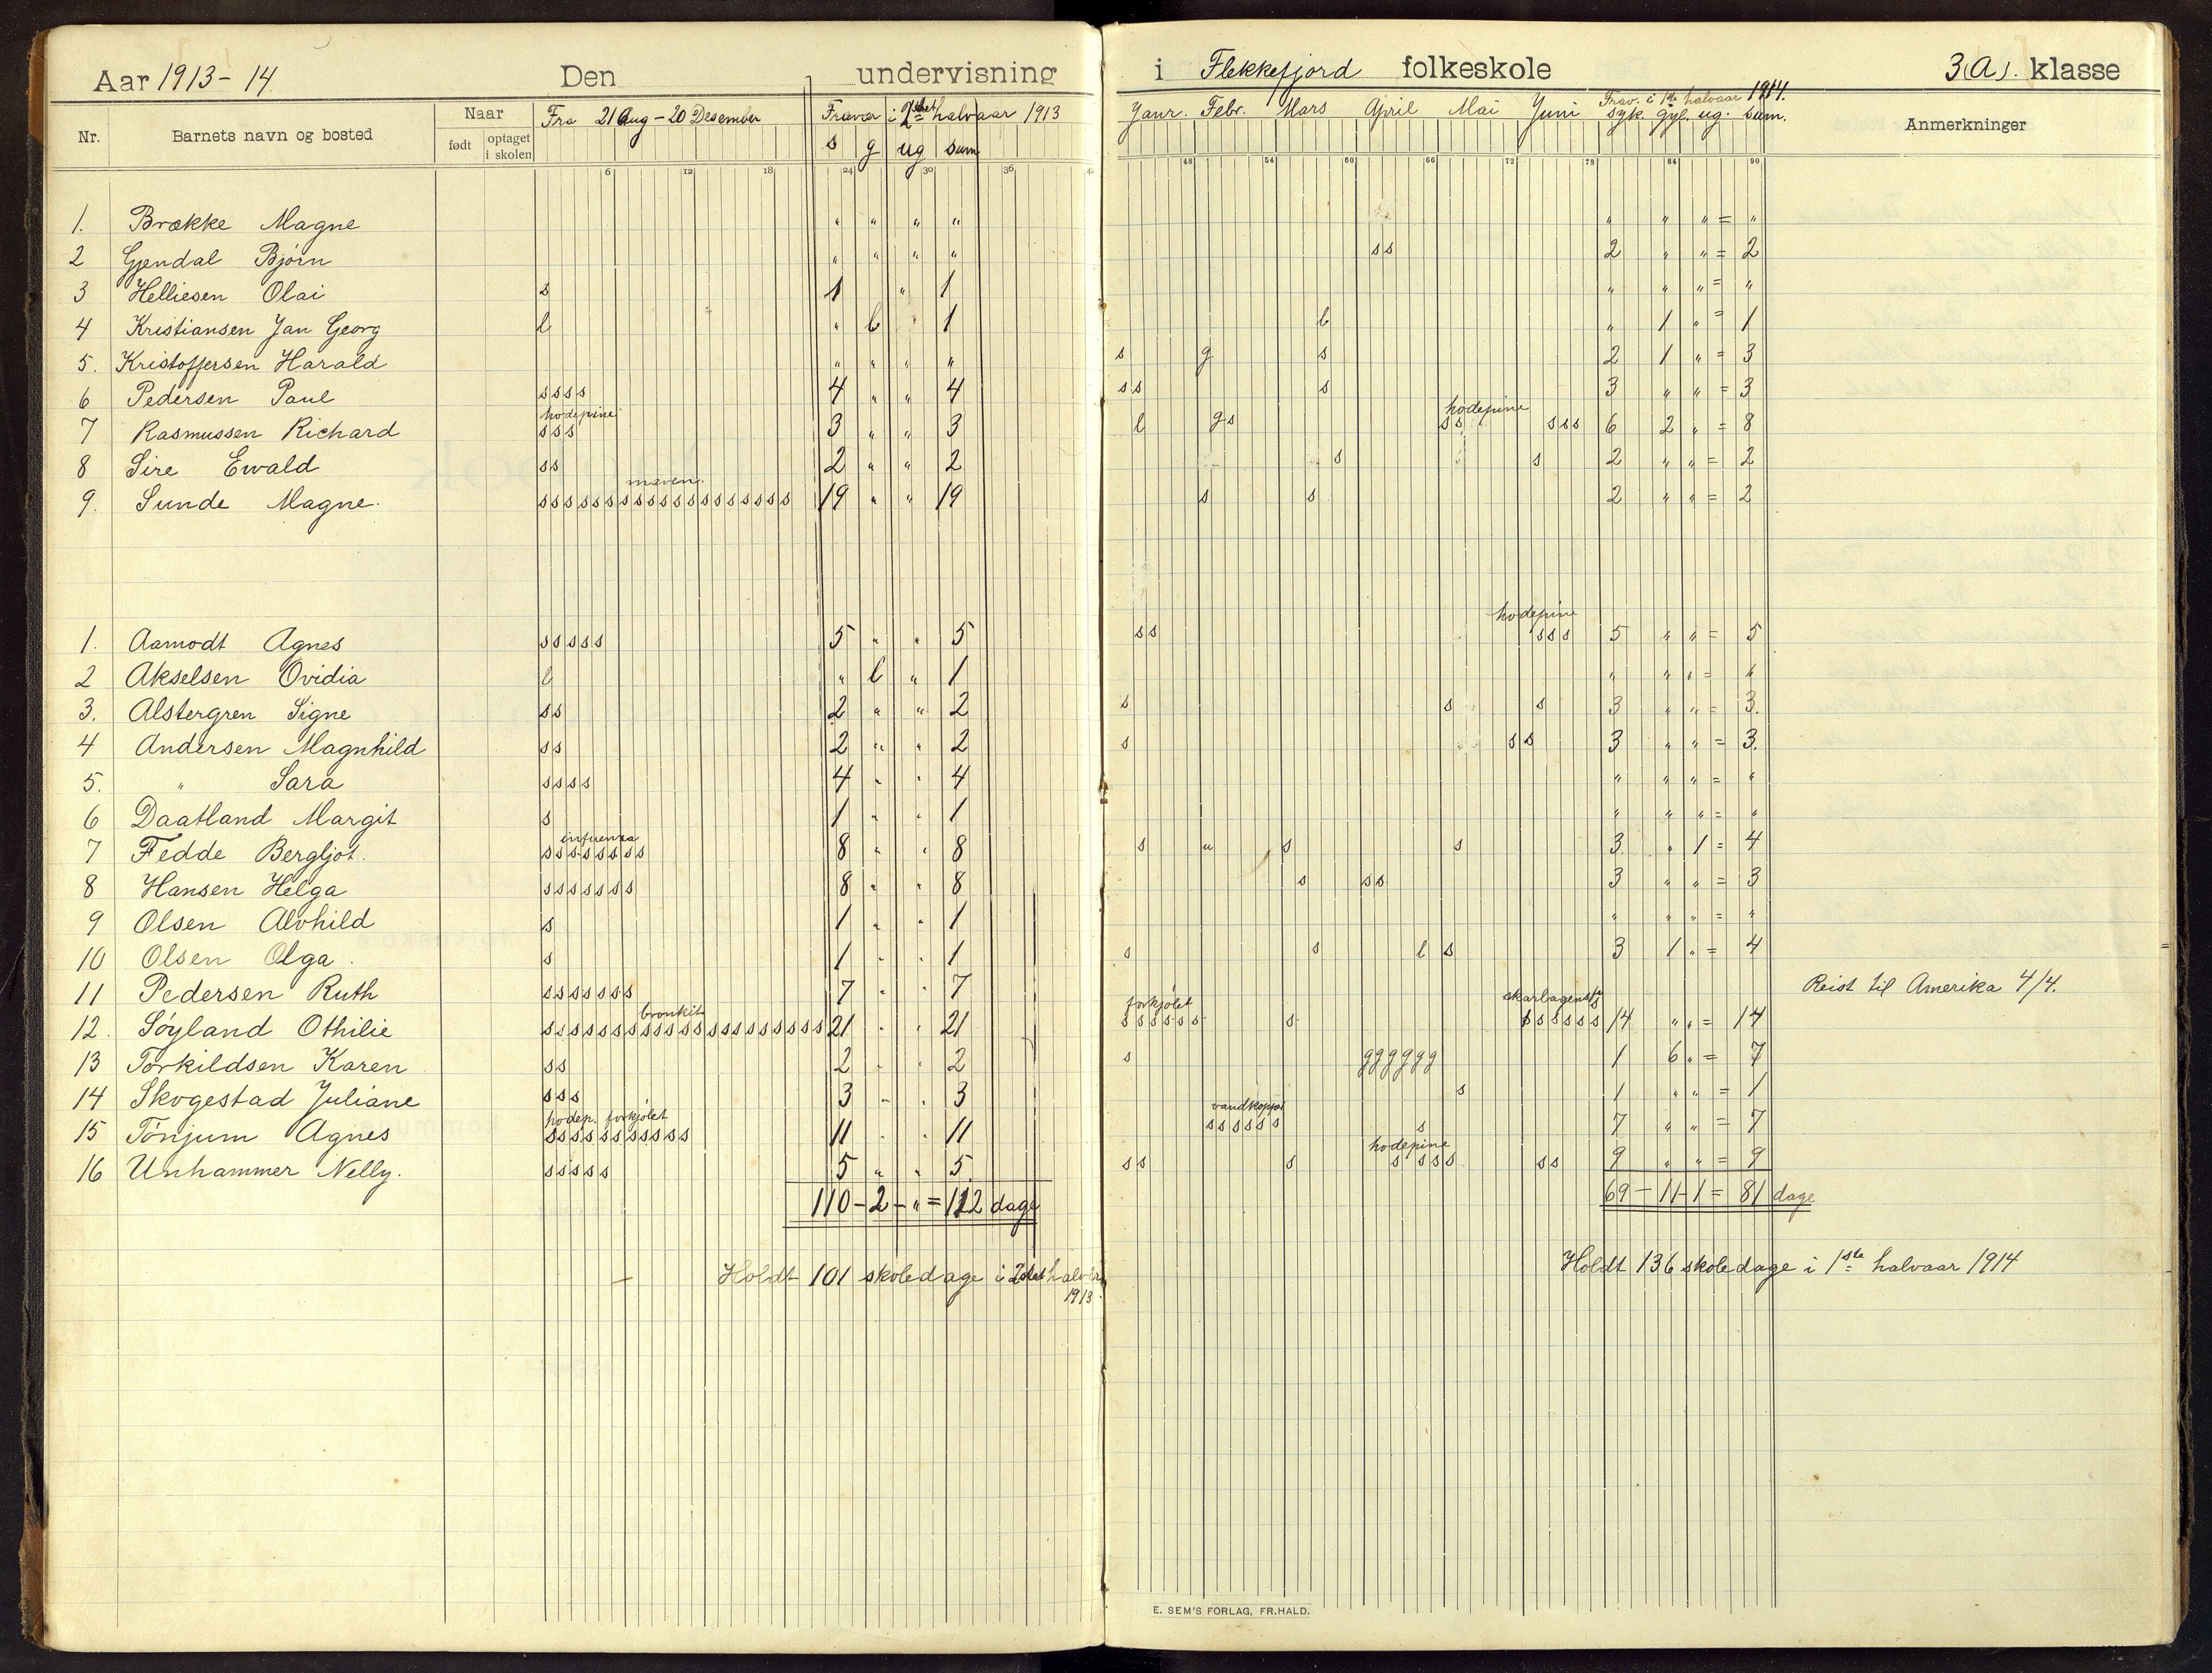 Aar 1913-14. Den undervisning i Flekkefjord folkeskole 3(A). klasse
Nr. Barnets navn og bosted Naar født optaget i skolen Fra 21 Aug - 20 Desember Fravær i 2det halvaar 1913 s g ug sum Janr. Febr. Mars April Mai Juni Frav. i 1ste halvaar 1914. syk. gyl. ug. sum. Anmerkninger
6 12 18 24 30 36 42 48 54 60 66 72 78 84 90
1. Brække Magne " " " " " " " = "
2 Gjendal Bjørn " " " " s s 2 " " = 2
3 Helliesen Olai s 1 " 1 " " " = "
4 Kristiansen Jan Georg l " l 1 l " 1 " = 1
5. Kristoffersen Harald " " " " s g s 2 1 " = 3
6 Pedersen Paul s s s s 4 " " 4 s s s 3 " " = 3
hodepine hodepine
7 Rasmussen Richard s s s 3 " " 3 l g s s s s s s 6 2 " = 8
8 Sire Ewald s s 2 " " 2 s s 2 " " = 2
maven.
9. Sunde Magne. s s s s s s s s s s s s s s s s s s s 19 " " 19 s s 2 " " = 2
hodepine
1. Aamodt Agnes s s s s s 5 " " 5 s s s s s 5 " " = 5
2 Akselsen Ovidia l " l " 1 " " " = "
3. Alstergren Signe s s 2 " " 2 s s s 3 " " = 3.
4 Andersen Magnhild s s 2 " " 2 s s s 3 " " = 3.
5. " Sara s s s s 4 " " 4 " " " = "
6 Daatland Margit s 1 " " 1 " " " = "
influensa
7 Fedde Bergljot. s s s s s s s s 8 " " 8 s u s s 3 " 1 = 4
8 Hansen Helga s s s s s s s 8 " " 8 s s s 3 " " = 3
9 Olsen Alvhild s 1 " " 1 " " " = "
10 Olsen Olga. s 1 " " 1 s s l s 3 1 " = 4
11 Pedersen Ruth s s s s s s s 7 " " 7 Reist til Amerika 4/4.
bronkit forkjølet skarlagensf
12. Søyland Othilie s s s s s s s s s s s s s s s s s s s s s 21 " " 21 s s s s s s s s s s s s s 14 " " = 14
13 Torkildsen Karen s s 2 " " 2 s g g g g g g 1 6 " = 7
14 Skogestad Juliane s s s 3 " " 3 s 1 " " = 1
hodep. forkjølet vandkopper
15 Tönjum Agnes s s s s s s s s s s s 11 " " 11 s s s s s s s 7 " " = 7
hodepine
16 Unhammer Nelly. s s s s s 5 " " 5 s s s s s s s s s 9 " " = 9
110 - 2 - " = 112 dage 69 - 11 - 1 = 81 dage
Holdt 101 skoledage i 2det halvår 1913. Holdt 136 skoledage i 1ste halvaar 1914
E. SEM'S FORLAG, FR.HALD.